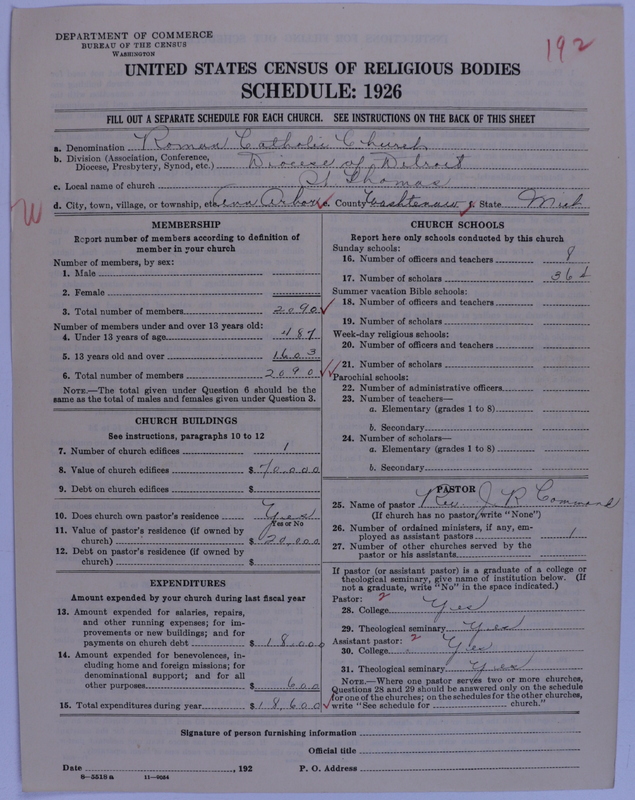 DEPARTMENT OF COMMERCE
BUREAU OF THE CENSUS
WASHINGTON
192
UNITED STATES CENSUS OF RELIGIOUS BODIES
SCHEDULE: 1926
FILL OUT A SEPARATE SCHEDULE FOR EACH CHURCH. SEE INSTRUCTIONS ON THE BACK OF THIS SHEET
a. Denomination Roman Catholic Church
b. Division (Association, Conference, Diocese, Presbytery, Synod, etc.) Diocese of Detroit
c. Local name of church St. Thomas
d. City, town, village, or township, etc. Ann Arbor e. County Washtenaw f. State Mich
W
MEMBERSHIP
Report number of members according to definition of
member in your church
Number of members, by sex:
1. Male
2. Female
3. Total number of members 2090
Number of members under and over 13 years old:
4. Under 13 years of age 487
5. 13 years old and over 1603
6. Total number of members 2090
NOTE.—The total given under Question 6 should be the
same as the total of males and females given under Question 3.
CHURCH BUILDINGS
See instructions, paragraphs 10 to 12
7. Number of church edifices 1
8. Value of church edifices $ 70,000
9. Debt on church edifices $
10. Does church own pastor's residence Yes
Yes or No
11. Value of pastor's residence (if owned by
church) $ 20,000
12. Debt on pastor's residence (if owned by
church) $
EXPENDITURES
Amount expended by your church during last fiscal year
13. Amount expended for salaries, repairs,
and other running expenses; for im-
provements or new buildings; and for
payments on church debt $ 18,000
14. Amount expended for benevolences, in-
cluding home and foreign missions; for
denominational support; and for all
other purposes $ 600
15. Total expenditures during year $ 18,600
CHURCH SCHOOLS
Report here only schools conducted by this church
Sunday schools:
16. Number of officers and teachers 8
17. Number of scholars
Summer vacation Bible schools:
18. Number of officers and teachers
19. Number of scholars
Week-day religious schools:
20. Number of officers and teachers
21. Number of scholars
Parochial schools:
22. Number of administrative officers
23. Number of teachers—
a. Elementary (grades 1 to 8)
b. Secondary
24. Number of scholars—
a. Elementary (grades 1 to 8)
b. Secondary
PASTOR
25. Name of pastor Rev. J. R. Command
(If church has no pastor, write "None")
26. Number of ordained ministers, if any, em-
ployed as assistant pastors 1
27. Number of other churches served by the
pastor or his assistants
If pastor (or assistant pastor) is a graduate of a college or
theological seminary, give name of institution below. (If
not a graduate, write "No" in the space indicated.)
Pastor: 2
28. College Yes
29. Theological seminary Yes
Assistant pastor: 2
30. College Yes
31. Theological seminary Yes
NOTE.—Where one pastor serves two or more churches,
Questions 28 and 29 should be answered only on the schedule
for one of the churches; on the schedules for the other churches,
write "See schedule for church."
Signature of person furnishing information
Official title
Date , 192 P. O. Address
8-5518a 11-9084